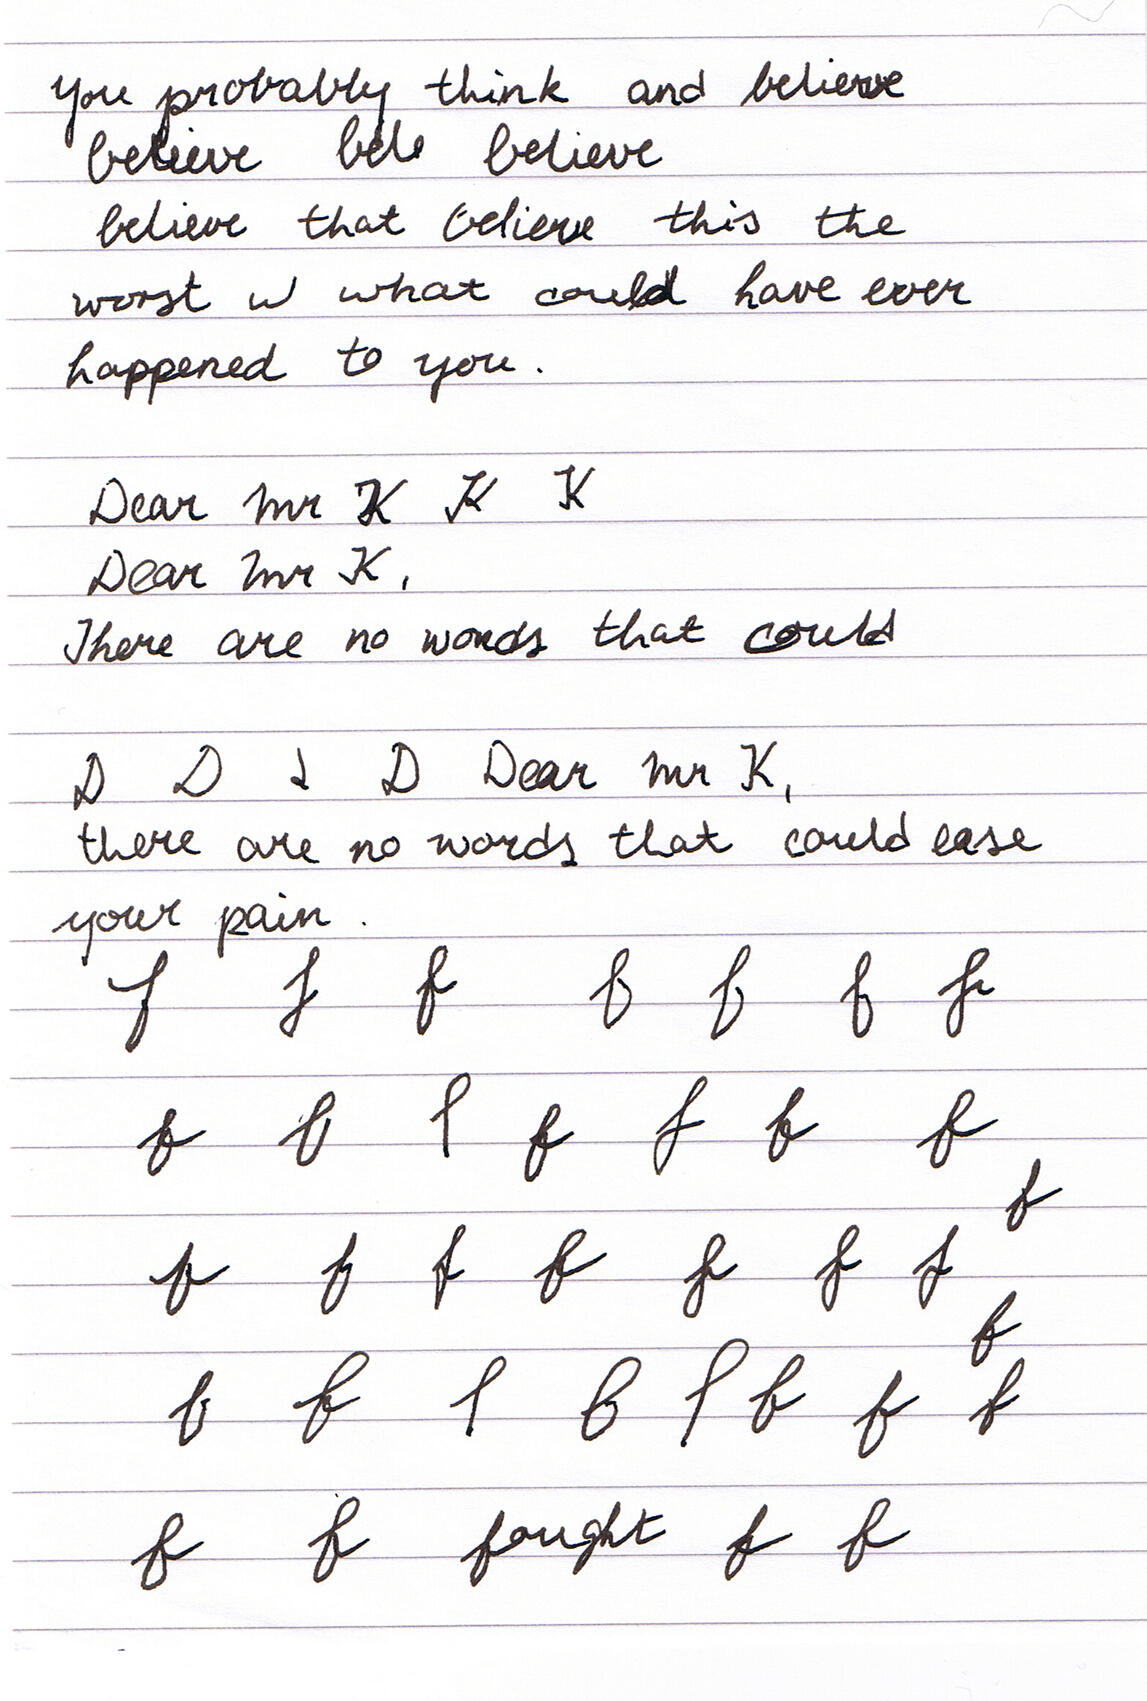 you probably think and believe
believe bele believe
believe that believe this the
worst w what could have ever
happened to you.
Dear Mr K K K
Dear Mr K,
There are no words that could
D D d D Dear Mr K,
there are no words that could ease
your pain.
f f f f f f f
f f l f f f f
f
f f f f f f f
f
f f l f l f f f
f f fought f f